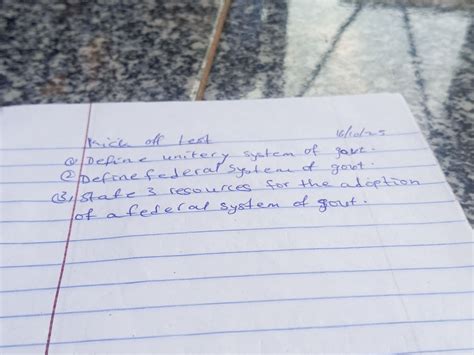 Kick off test 16/10/25
(1) Define unitery system of govt.
(2) Define federal system of govt.
(3) State 3 resources for the adoption
of a federal system of govt.